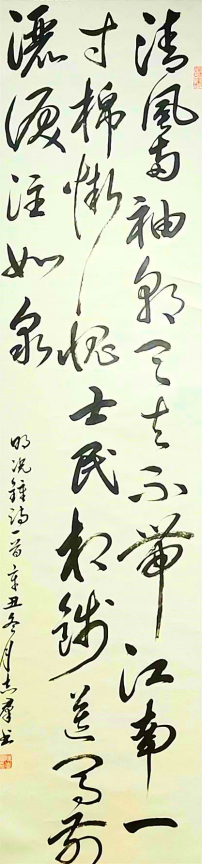 清風兩袖朝天去不帶江南一
寸棉慚愧士民相餞送馬前
灑淚注如泉
明况鍾詩一首辛丑冬月志群书